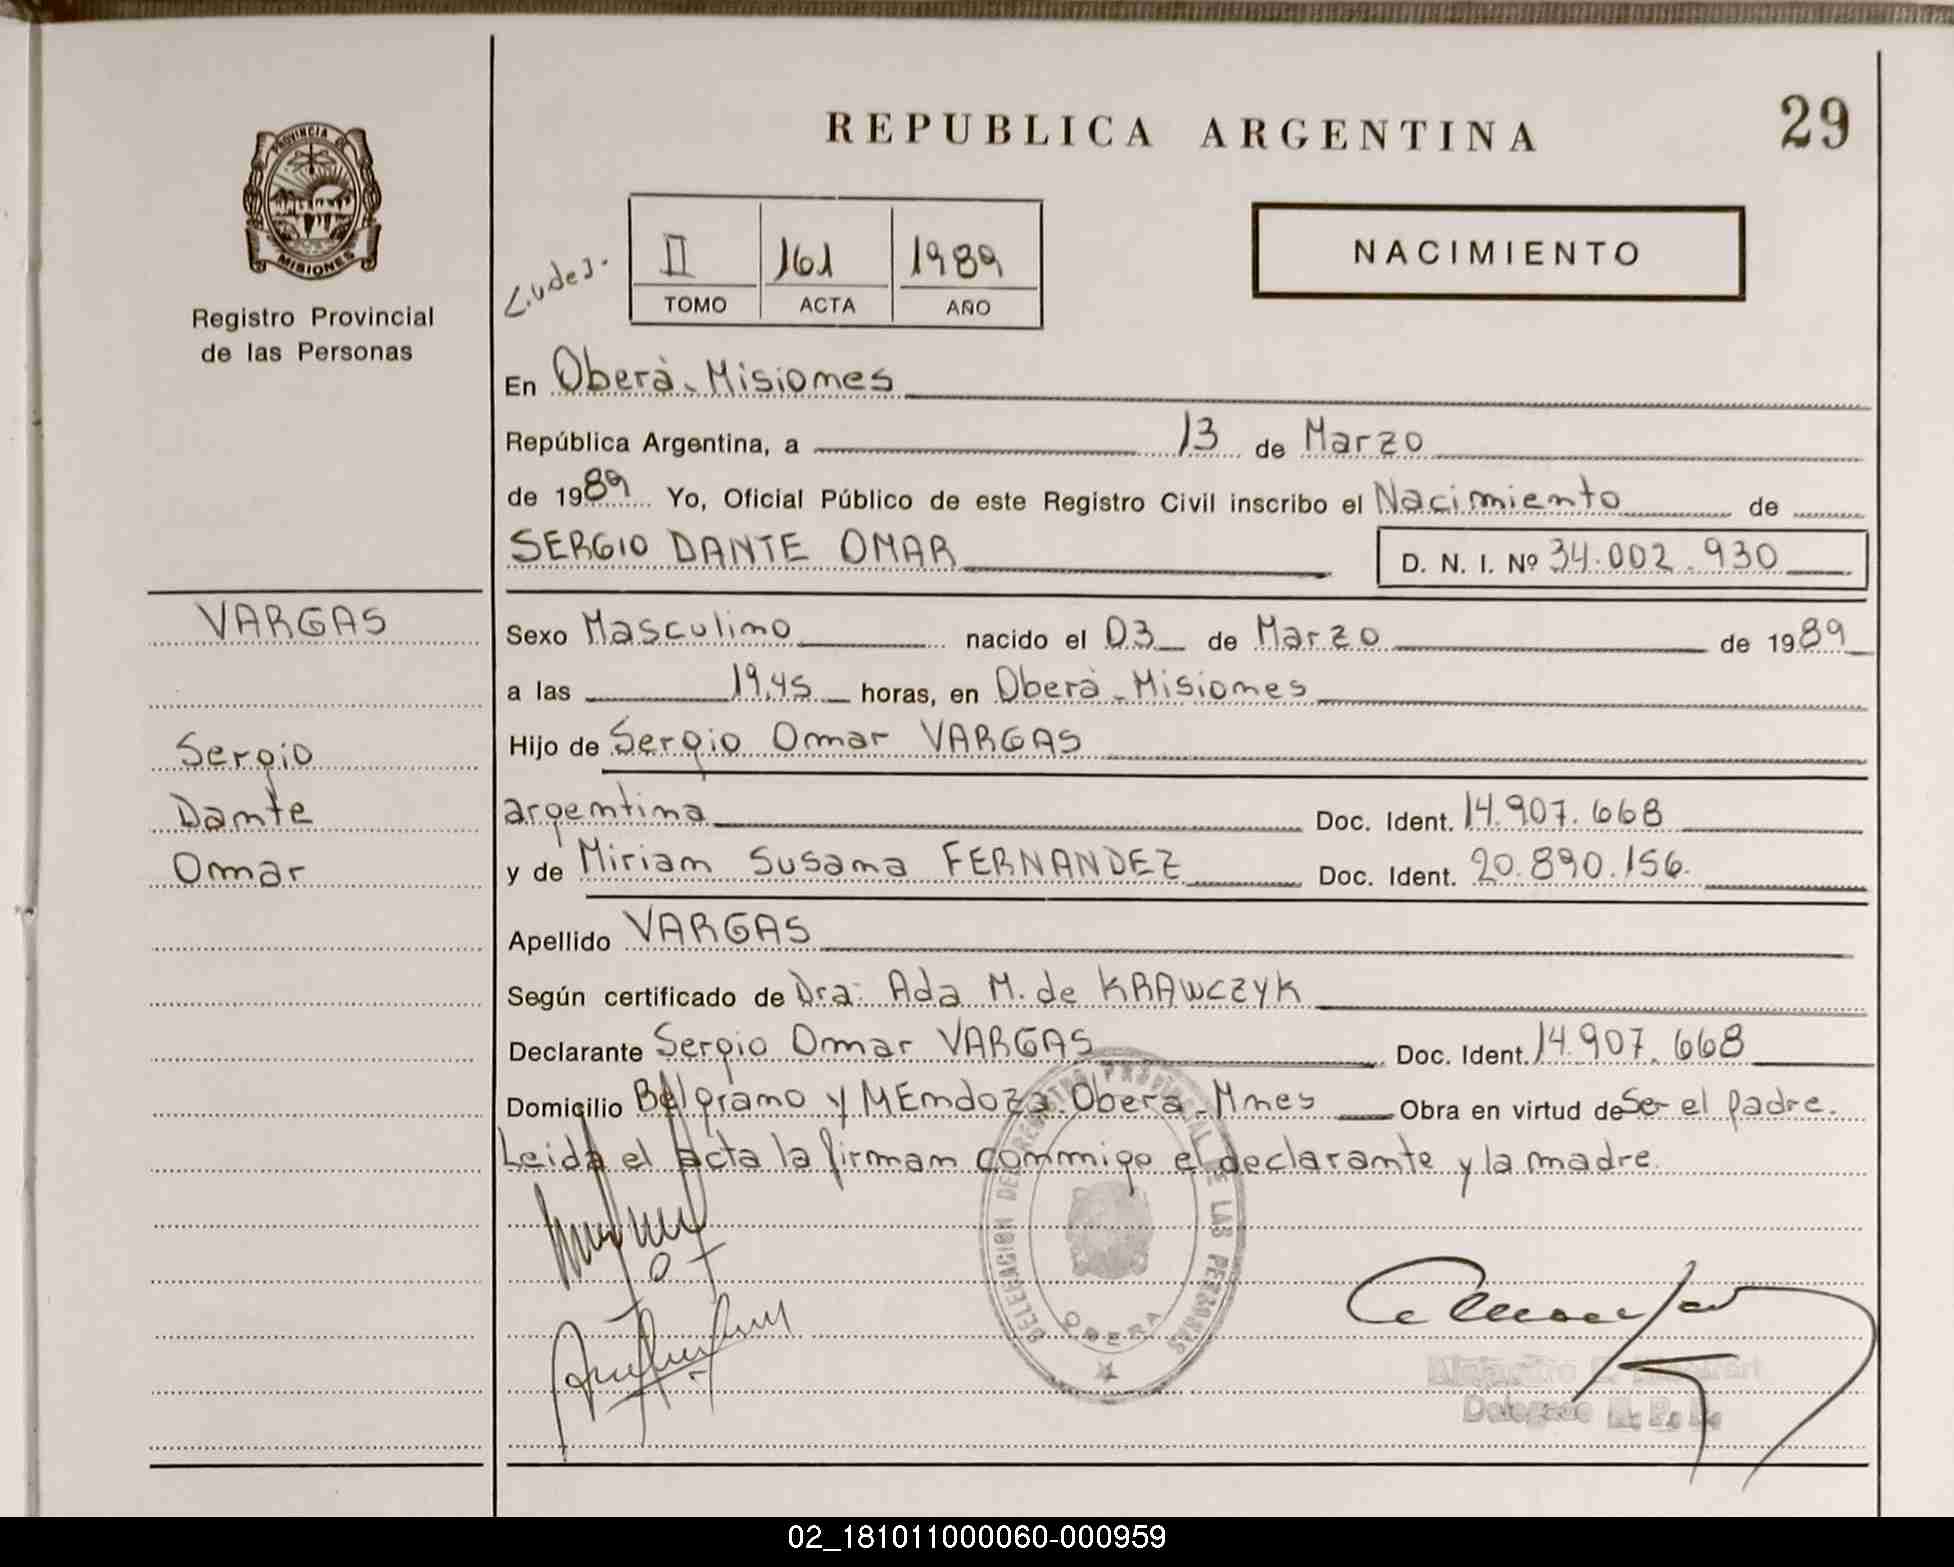 REPUBLICA ARGENTINA
29
PROVINCIA DE
MISIONES
Registro Provincial
de las Personas
II 161 1989
TOMO ACTA AÑO
NACIMIENTO
En Oberà - Misiones
República Argentina, a 13 de Marzo
de 1989 Yo, Oficial Público de este Registro Civil inscribo el Nacimiento de
SERGIO DANTE OMAR D. N. I. Nº 34.002.930
VARGAS
Sergio
Dante
Omar
Sexo Masculino nacido el 03 de Marzo de 1989
a las 19,45 horas, en Oberà - Misiones
Hijo de Sergio Omar VARGAS
argentina Doc. Ident. 14.907.668
y de Miriam Susana FERNANDEZ Doc. Ident. 20.890.156.
Apellido VARGAS
Según certificado de Dra. Ada M. de KRAWCZYK
Declarante Sergio Omar VARGAS Doc. Ident. 14.907.668
Domicilio Belgrano y MEndoza. Oberà - Mnes Obra en virtud de Ser el padre.
Leida el acta la firman conmigo el declarante y la madre.
DELEGACION DEL REGISTRO PROVINCIAL DE LAS PERSONAS
OBERA
Delegado R. P. P.
02_181011000060-000959